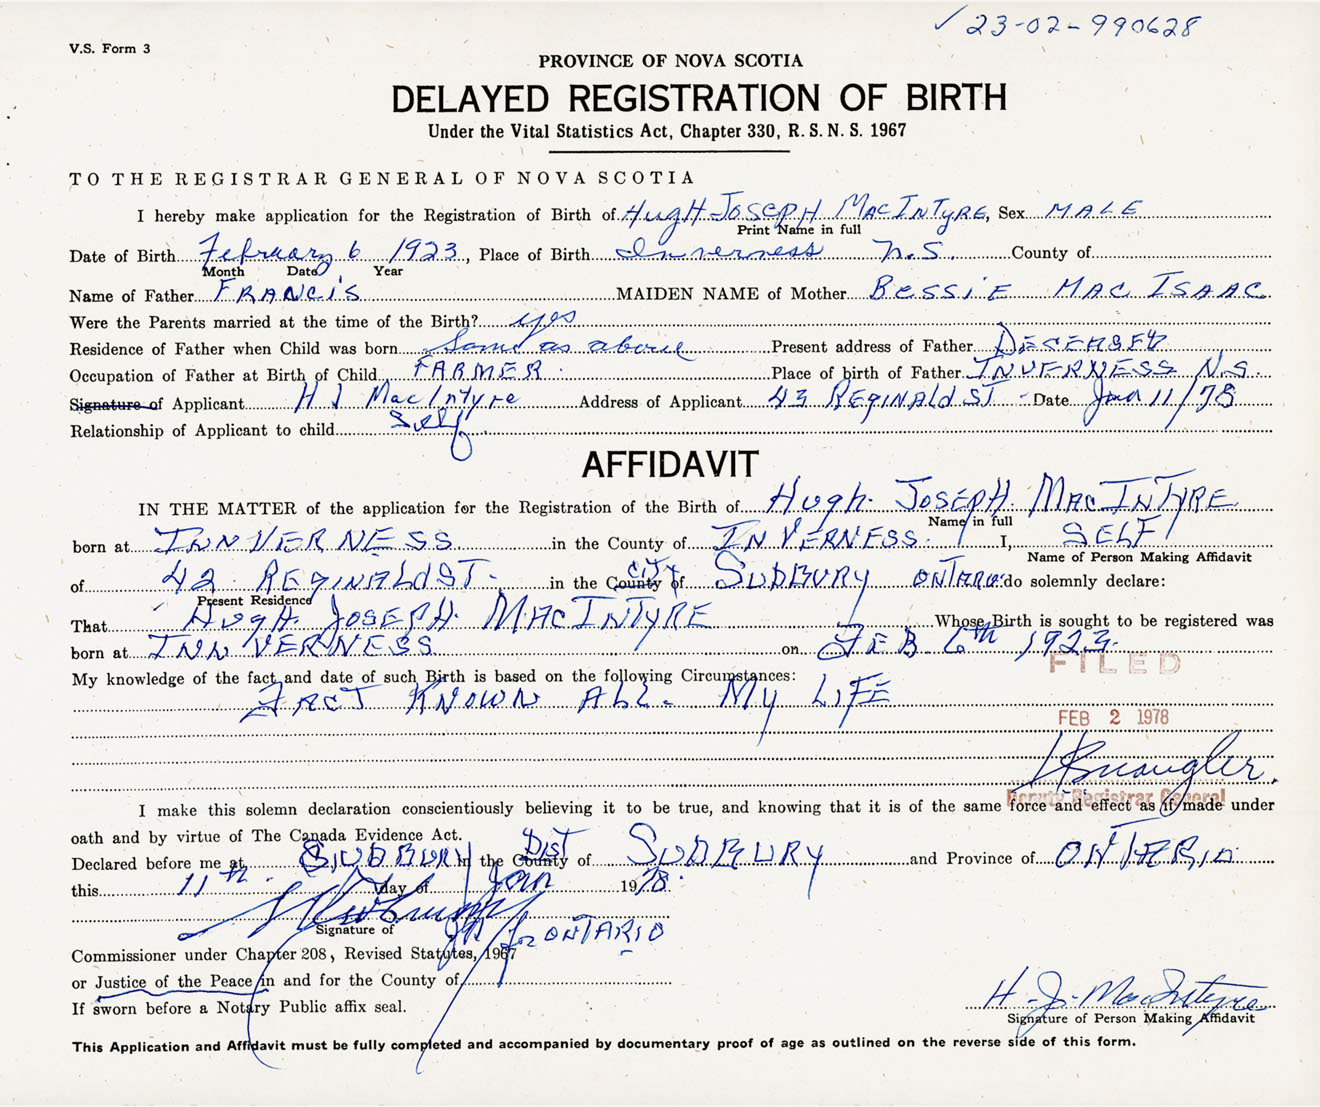 ✓ 23-02-990628
V.S. Form 3
PROVINCE OF NOVA SCOTIA
DELAYED REGISTRATION OF BIRTH
Under the Vital Statistics Act, Chapter 330, R. S. N. S. 1967
TO THE REGISTRAR GENERAL OF NOVA SCOTIA
I hereby make application for the Registration of Birth of HugH JOSEPH MACINTYRE, Sex MALE
Print Name in full
Date of Birth February 6 1923, Place of Birth Inverness N.S. County of
Month Date Year
Name of Father FRANCIS MAIDEN NAME of Mother BESSIE MAC ISAAC
Were the Parents married at the time of the Birth? yes
Residence of Father when Child was born Same as above Present address of Father DECEASED
Occupation of Father at Birth of Child FARMER. Place of birth of Father INVERNESS N.S.
Signature of Applicant H J MacIntyre Address of Applicant 43 REginAld ST - Date Jan 11/78
Relationship of Applicant to child Self
AFFIDAVIT
IN THE MATTER of the application for the Registration of the Birth of Hugh. JOSEPH. MACINTYRE
Name in full
born at INNVERNESS in the County of INVERNESS. I, SELF
Name of Person Making Affidavit
of 42 REGINALdST. in the County CITY of SUDBURY ONTARIO do solemnly declare:
Present Residence
That HugH. JOSEPH. MACINTYRE Whose Birth is sought to be registered was
born at INNVERNESS on FEB. 6th 1923.
FILED
My knowledge of the fact and date of such Birth is based on the following Circumstances:
FACT KNOWN ALL. My LIFE
FEB 2 1978
Deputy Registrar General
I make this solemn declaration conscientiously believing it to be true, and knowing that it is of the same force and effect as if made under
oath and by virtue of The Canada Evidence Act.
Declared before me at SUDBURY in the County DIST of SUDBURY and Province of ONTARIO
this 11th. day of Jan 1978.
Signature of
JP for ONTARIO
Commissioner under Chapter 208, Revised Statutes, 1967
or Justice of the Peace in and for the County of
If sworn before a Notary Public affix seal.
H. J. MacIntyre
Signature of Person Making Affidavit
This Application and Affidavit must be fully completed and accompanied by documentary proof of age as outlined on the reverse side of this form.